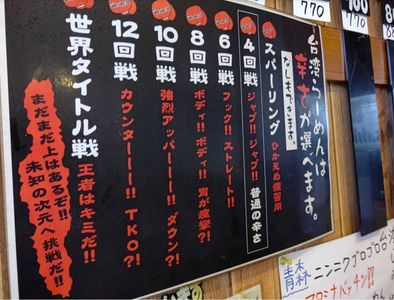 台湾らーめんは
辛さが選べます。
なしもできます。
スパーリング ひかえめ練習用
4回戦 ジャブ!! ジャブ!! 普通の辛さ
6回戦 フック!! ストレート!!
8回戦 ボディ!! ボディ!! 胃が痙攣?!
10回戦 強烈アッパーーー!! ダウン?!
12回戦 カウンターーー!! TKO?!
世界タイトル戦 王者はキミだ!!
まだまだ上はあるぞ!!
未知の次元へ 挑戦だ!!
770
100
770
青森
ニンニクゴロゴロ台